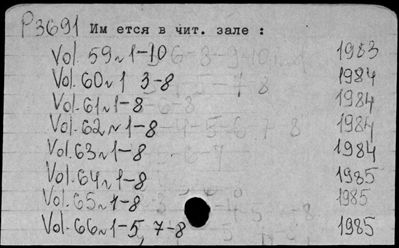 P3691 Имеется в чит. зале :
Vol. 59 N 1-10 1983
Vol. 60 N 1 3-8 1984
Vol. 61 N 1-8 1984
Vol. 62 N 1-8 1984
Vol. 63 N 1-8 1984
Vol. 64 N 1-8 1985
Vol. 65 N 1-8 1985
Vol. 66 N 1-5, 7-8 1985